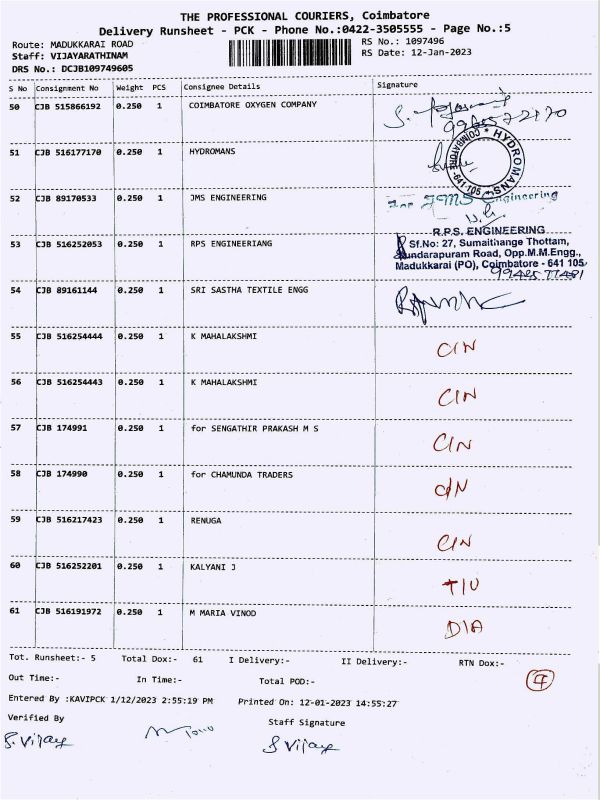 THE PROFESSIONAL COURIERS, Coimbatore
Delivery Runsheet - PCK - Phone No.:0422-3505555 - Page No.:5
Route: MADUKKARAI ROAD
RS No.: 1097496
Staff: VIJAYARATHINAM
RS Date: 12-Jan-2023
DRS No.: DCJB109749605
S No Consignment No Weight PCS Consignee Details Signature
50 CJB 515866192 0.250 1 COIMBATORE OXYGEN COMPANY
51 CJB 516177170 0.250 1 HYDROMANS
HYDROMANS * COIMBATORE-641 105 *
52 CJB 89170533 0.250 1 JMS ENGINEERING
For JMS Engineering
53 CJB 516252053 0.250 1 RPS ENGINEERIANG
R.P.S. ENGINEERING
Sf.No: 27, Sumaithange Thottam,
Sundarapuram Road, Opp.M.M.Engg.,
Madukkarai (PO), Coimbatore - 641 105.
54 CJB 89161144 0.250 1 SRI SASTHA TEXTILE ENGG
55 CJB 516254444 0.250 1 K MAHALAKSHMI CIN
56 CJB 516254443 0.250 1 K MAHALAKSHMI CIN
57 CJB 174991 0.250 1 for SENGATHIR PRAKASH M S CIN
58 CJB 174990 0.250 1 for CHAMUNDA TRADERS CIN
59 CJB 516217423 0.250 1 RENUGA CIN
60 CJB 516252201 0.250 1 KALYANI J TIU
61 CJB 516191972 0.250 1 M MARIA VINOD DIA
Tot. Runsheet:- 5 Total Dox:- 61 I Delivery:- II Delivery:- RTN Dox:-
Out Time:- In Time:- Total POD:-
Entered By :KAVIPCK 1/12/2023 2:55:19 PM Printed On: 12-01-2023 14:55:27
Verified By Staff Signature
S. Vijay S Vijay